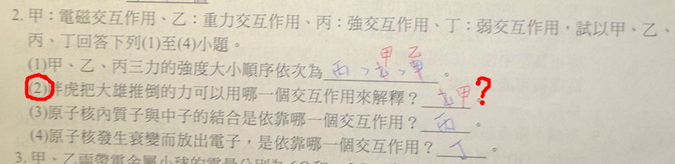 2. 甲：電磁交互作用、乙：重力交互作用、丙：強交互作用、丁：弱交互作用，試以甲、乙、
丙、丁回答下列(1)至(4)小題。
(1)甲、乙、丙三力的強度大小順序依次為 丙 > 甲 > 乙 。
(2)胖虎把大雄推倒的力可以用哪一個交互作用來解釋？ 甲 ?
(3)原子核內質子與中子的結合是依靠哪一個交互作用？ 丙 。
(4)原子核發生衰變而放出電子，是依靠哪一個交互作用？ 丁 。
3. 甲、乙兩帶電金屬小球的電量分別為